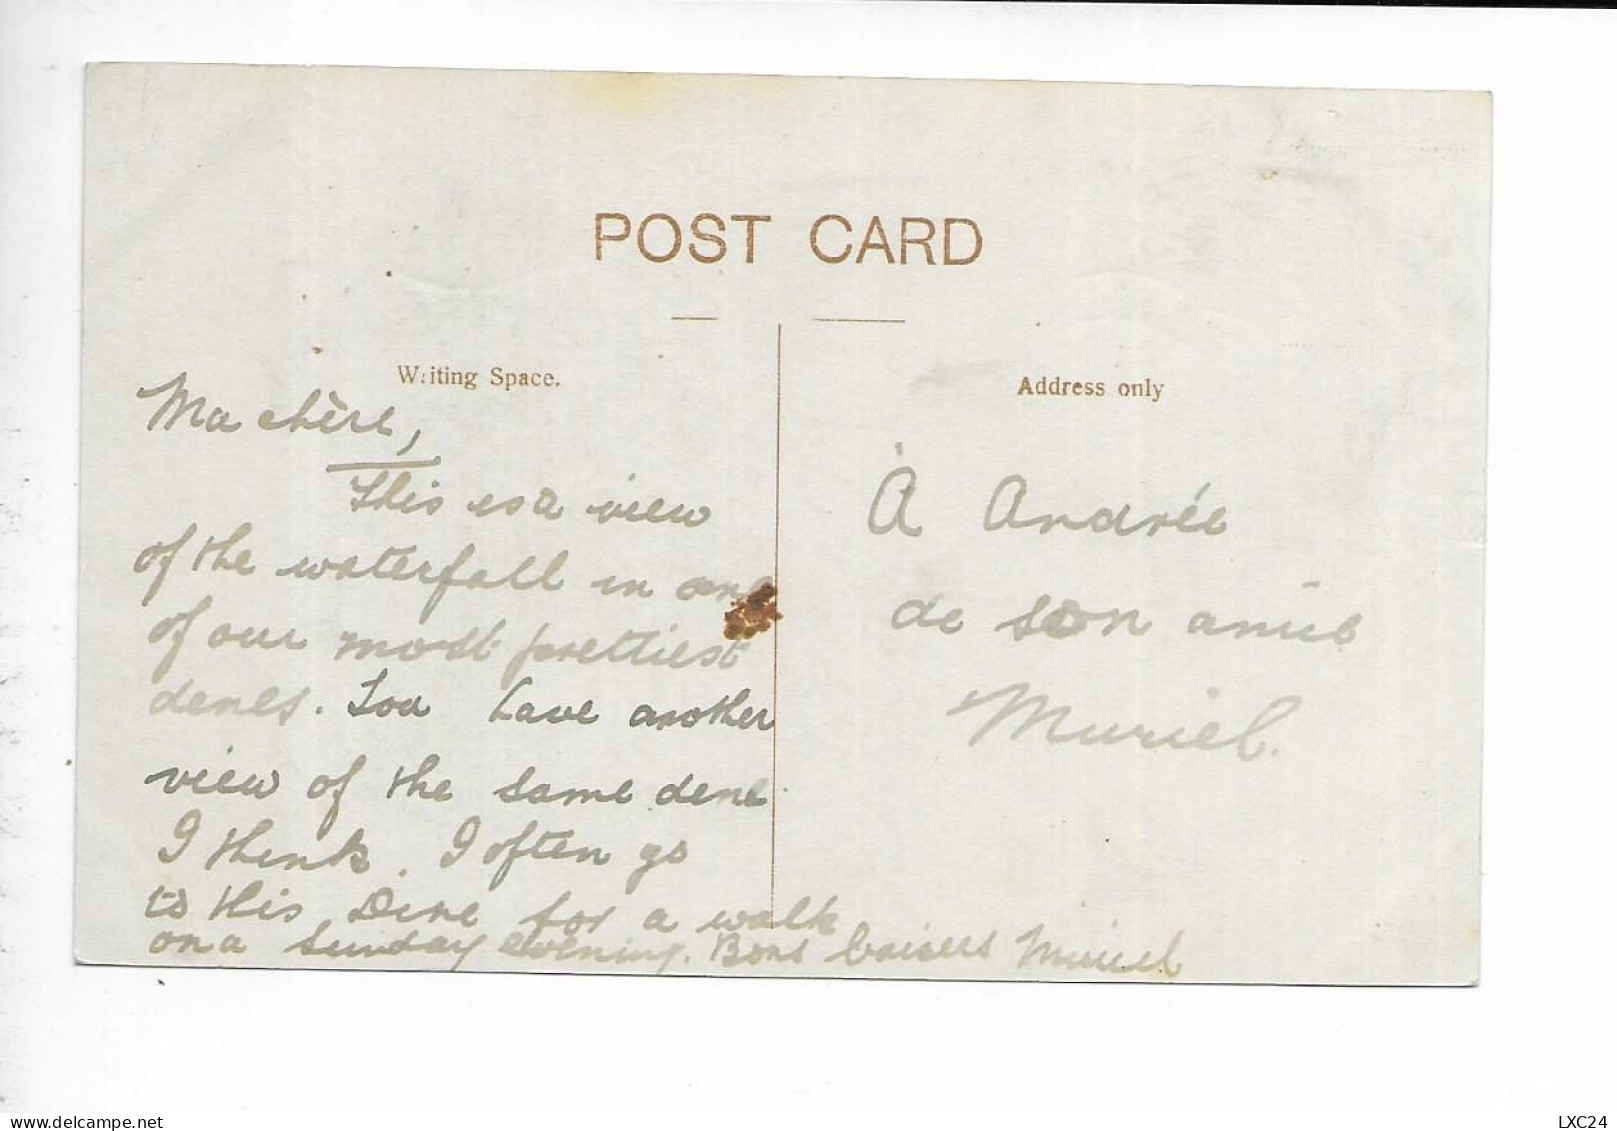 POST CARD
Writing Space.
Address only
Ma chère,
This is a view
of the waterfall in one
of our most prettiest
denes. You have another
view of the same dene
I think. I often go
to this Dene for a walk
on a Sunday evening. Bons baisers Muriel
À Andrée
de son amie
Muriel.
delcampe.net
LXC24